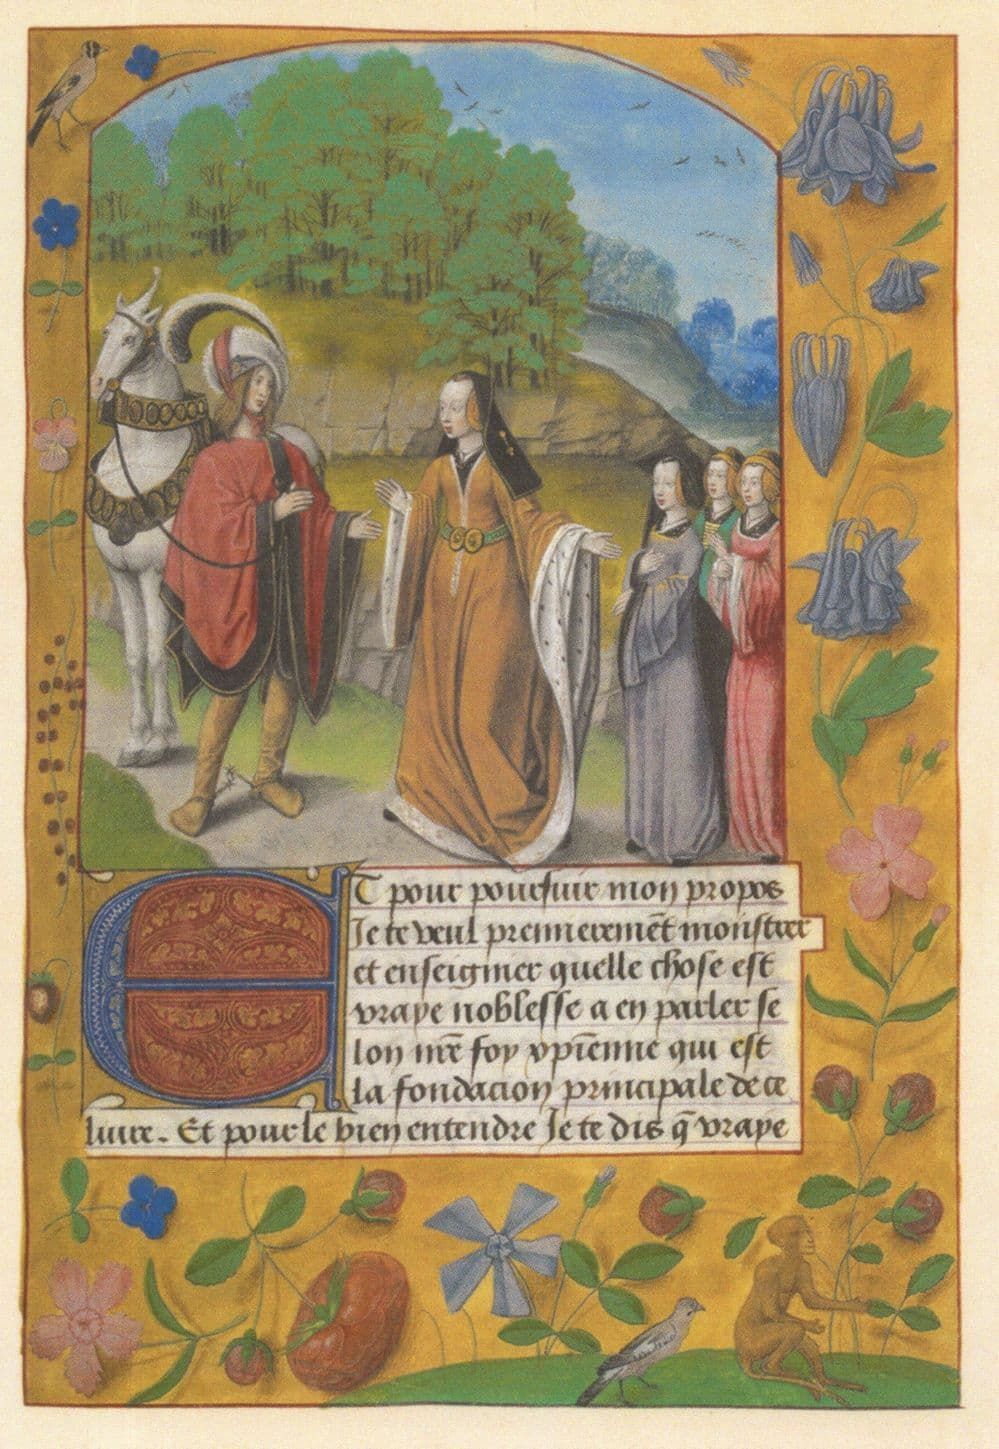 ET pour poursuir mon propos
Je te veul premieremẽt monstrer
et enseigner quelle chose est
vraye noblesse a en parler se
lon nr̃e foy xp̃ienne qui est
la fondacion principale de ce
liure. Et pour le bien entendre Je te dis q̃ vraye